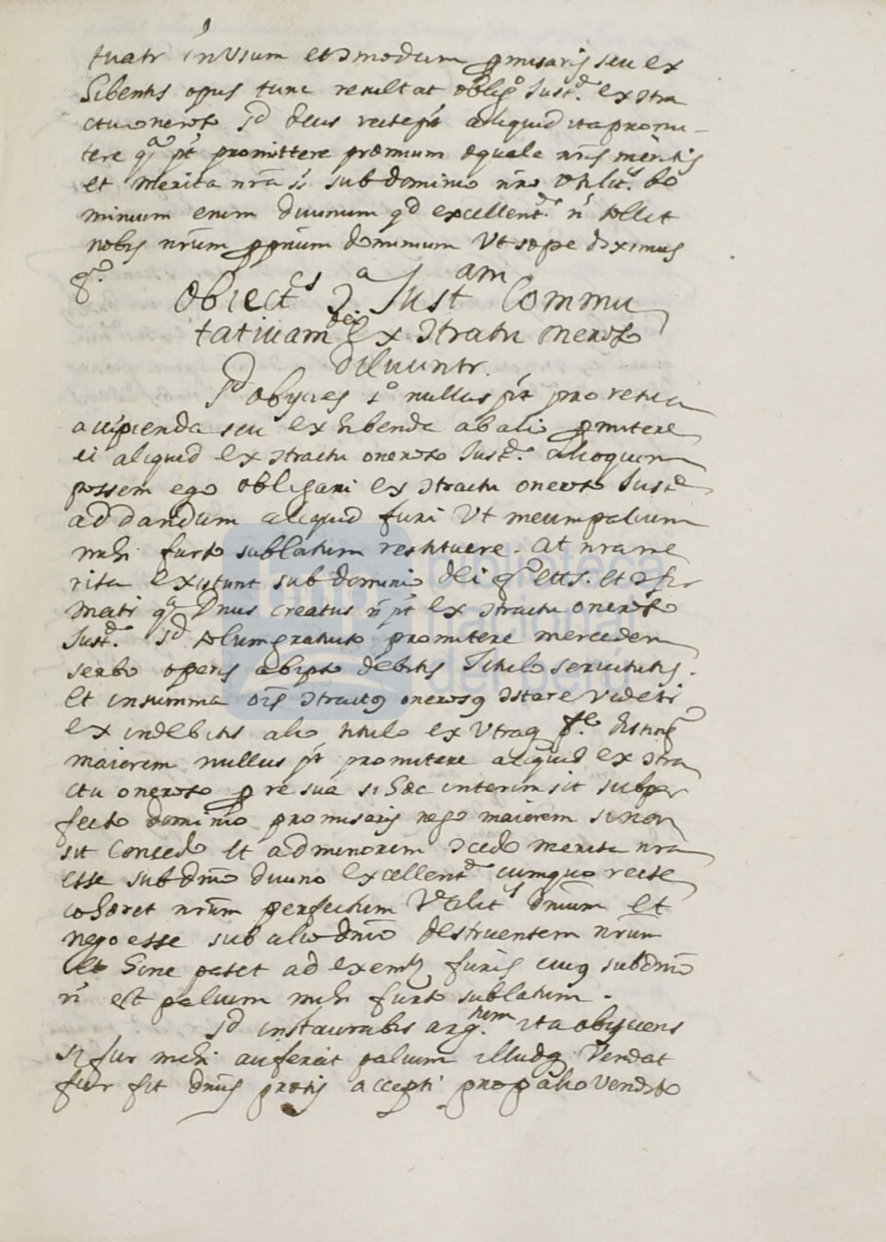 tuatr in Usum et ɔmodum ꝓmisaris seu ex
hibentis opus tunc resultat oblig.º Just.ᵉ ex ɔtra
ctu oneroso sd Deus recte pt̃ aliquid ita promi-
tere qᵃ pt̃ promittere proemium equale nr̃is meritis
et merita nr̃a st̃ sub dominio nr̃o Do
minium enim Divinum qd excellent.ᵉ ñ tollit
nobis nr̃um ꝓprium dominium Ut sæpe diximus
Obiect.ᵉˢ ɔ.ᵃ Justᵃᵐ Commu
tativam Dei Ex ɔtratu oneroso
Diluuntr.
Sd obijcies 1º nullus pt̃ pro re sua
accipienda seu exhibenda ab alio ꝓmitere
ei aliquid ex ɔtractu oneroso Just.ᵉ alioquin
possem ego obligari ex ɔtractu oneroso Just.ᵉ
ad dandum aliquid furi Ut meum palium
mihi furto sublatum restituere. at nr̃a me
rita existunt sub dominio Dei et ɔfir
matr qᵃ Dñus creatus ñ pt̃ ex ɔtractu oneroso
Just.ᵉ sd solum gratuito promitere mercedem
serbo operis ab ipso debitis titulo servitutis.
Et in summa ois̃ ɔtractus onerosus ɔstare Videtr
ex indebitis alio titulo ex Utraq̃ p.ᵉ disting.º
maiorem nullus pt̃ promitere aliquid ex ɔtra
ctu oneroso ꝓ re sua si hæc interim sit sub per
fecto dominio promisaris nego maiorem si non
sit Concedo Et ad minorem ɔcedo merita nr̃a
esse sub dñio divino Excellent.ᵉ cum quo recte
cohæret nr̃um perfectum dñium Et
nego esse sub alio dñio destruentem nr̃um
Et hinc patet ad exemp. furis cuius sub dñio
ñ est palium mihi furto sublatum.
Sd instaurabis arg.ᵗᵘᵐ ita obijciens
si fur mihi auferat palium illudq̃ Vendat
fur fit dñus pretij accepti pro palio Vendito